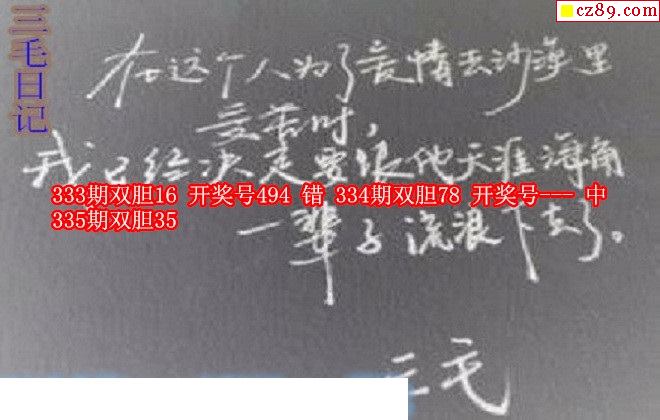 cz89.com
三毛日记
在这个人为了爱情去沙漠里
受苦时，
我已经决定要跟他天涯海角
333期双胆16 开奖号494 错 334期双胆78 开奖号--- 中
335期双胆35
一辈子流浪下去了。
三毛